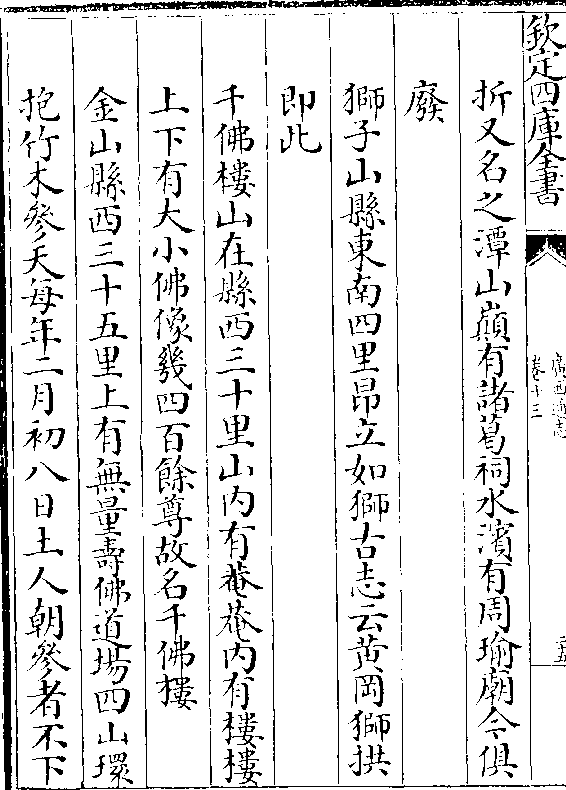 欽定四庫全書
廣西通志
卷十三
二五
折又名之潭山巔有諸葛祠水濱有周瑜廟今俱
廢
獅子山縣東南四里昂立如獅古志云黄岡獅拱
即此
千佛樓山在縣西三十里山内有菴菴内有樓樓
上下有大小佛像幾四百餘尊故名千佛樓
金山縣西三十五里上有無量壽佛道場四山環
抱竹木參天每年二月初八日土人朝參者不下